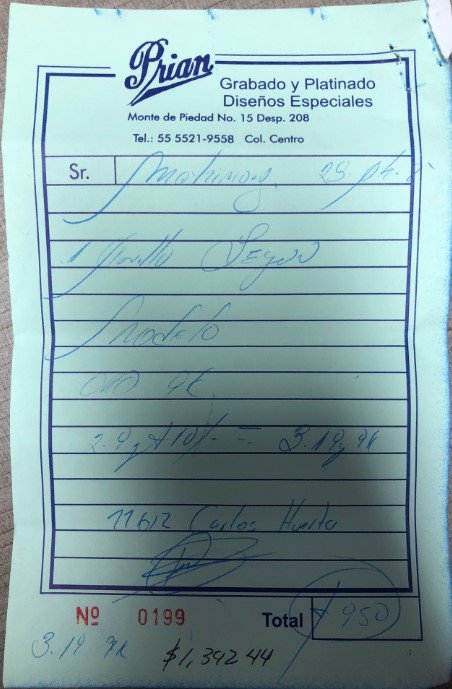 Prian
Grabado y Platinado
Diseños Especiales
Monte de Piedad No. 15 Desp. 208
Tel.: 55 5521-9558 Col. Centro
Sr.
1 Anillo Segun
Modelo
oro 9k
2.9g +10% = 3.19g 9k
11612 Carlos Huerta
Nº 0199 Total $950
3.19 9k $1,392 44